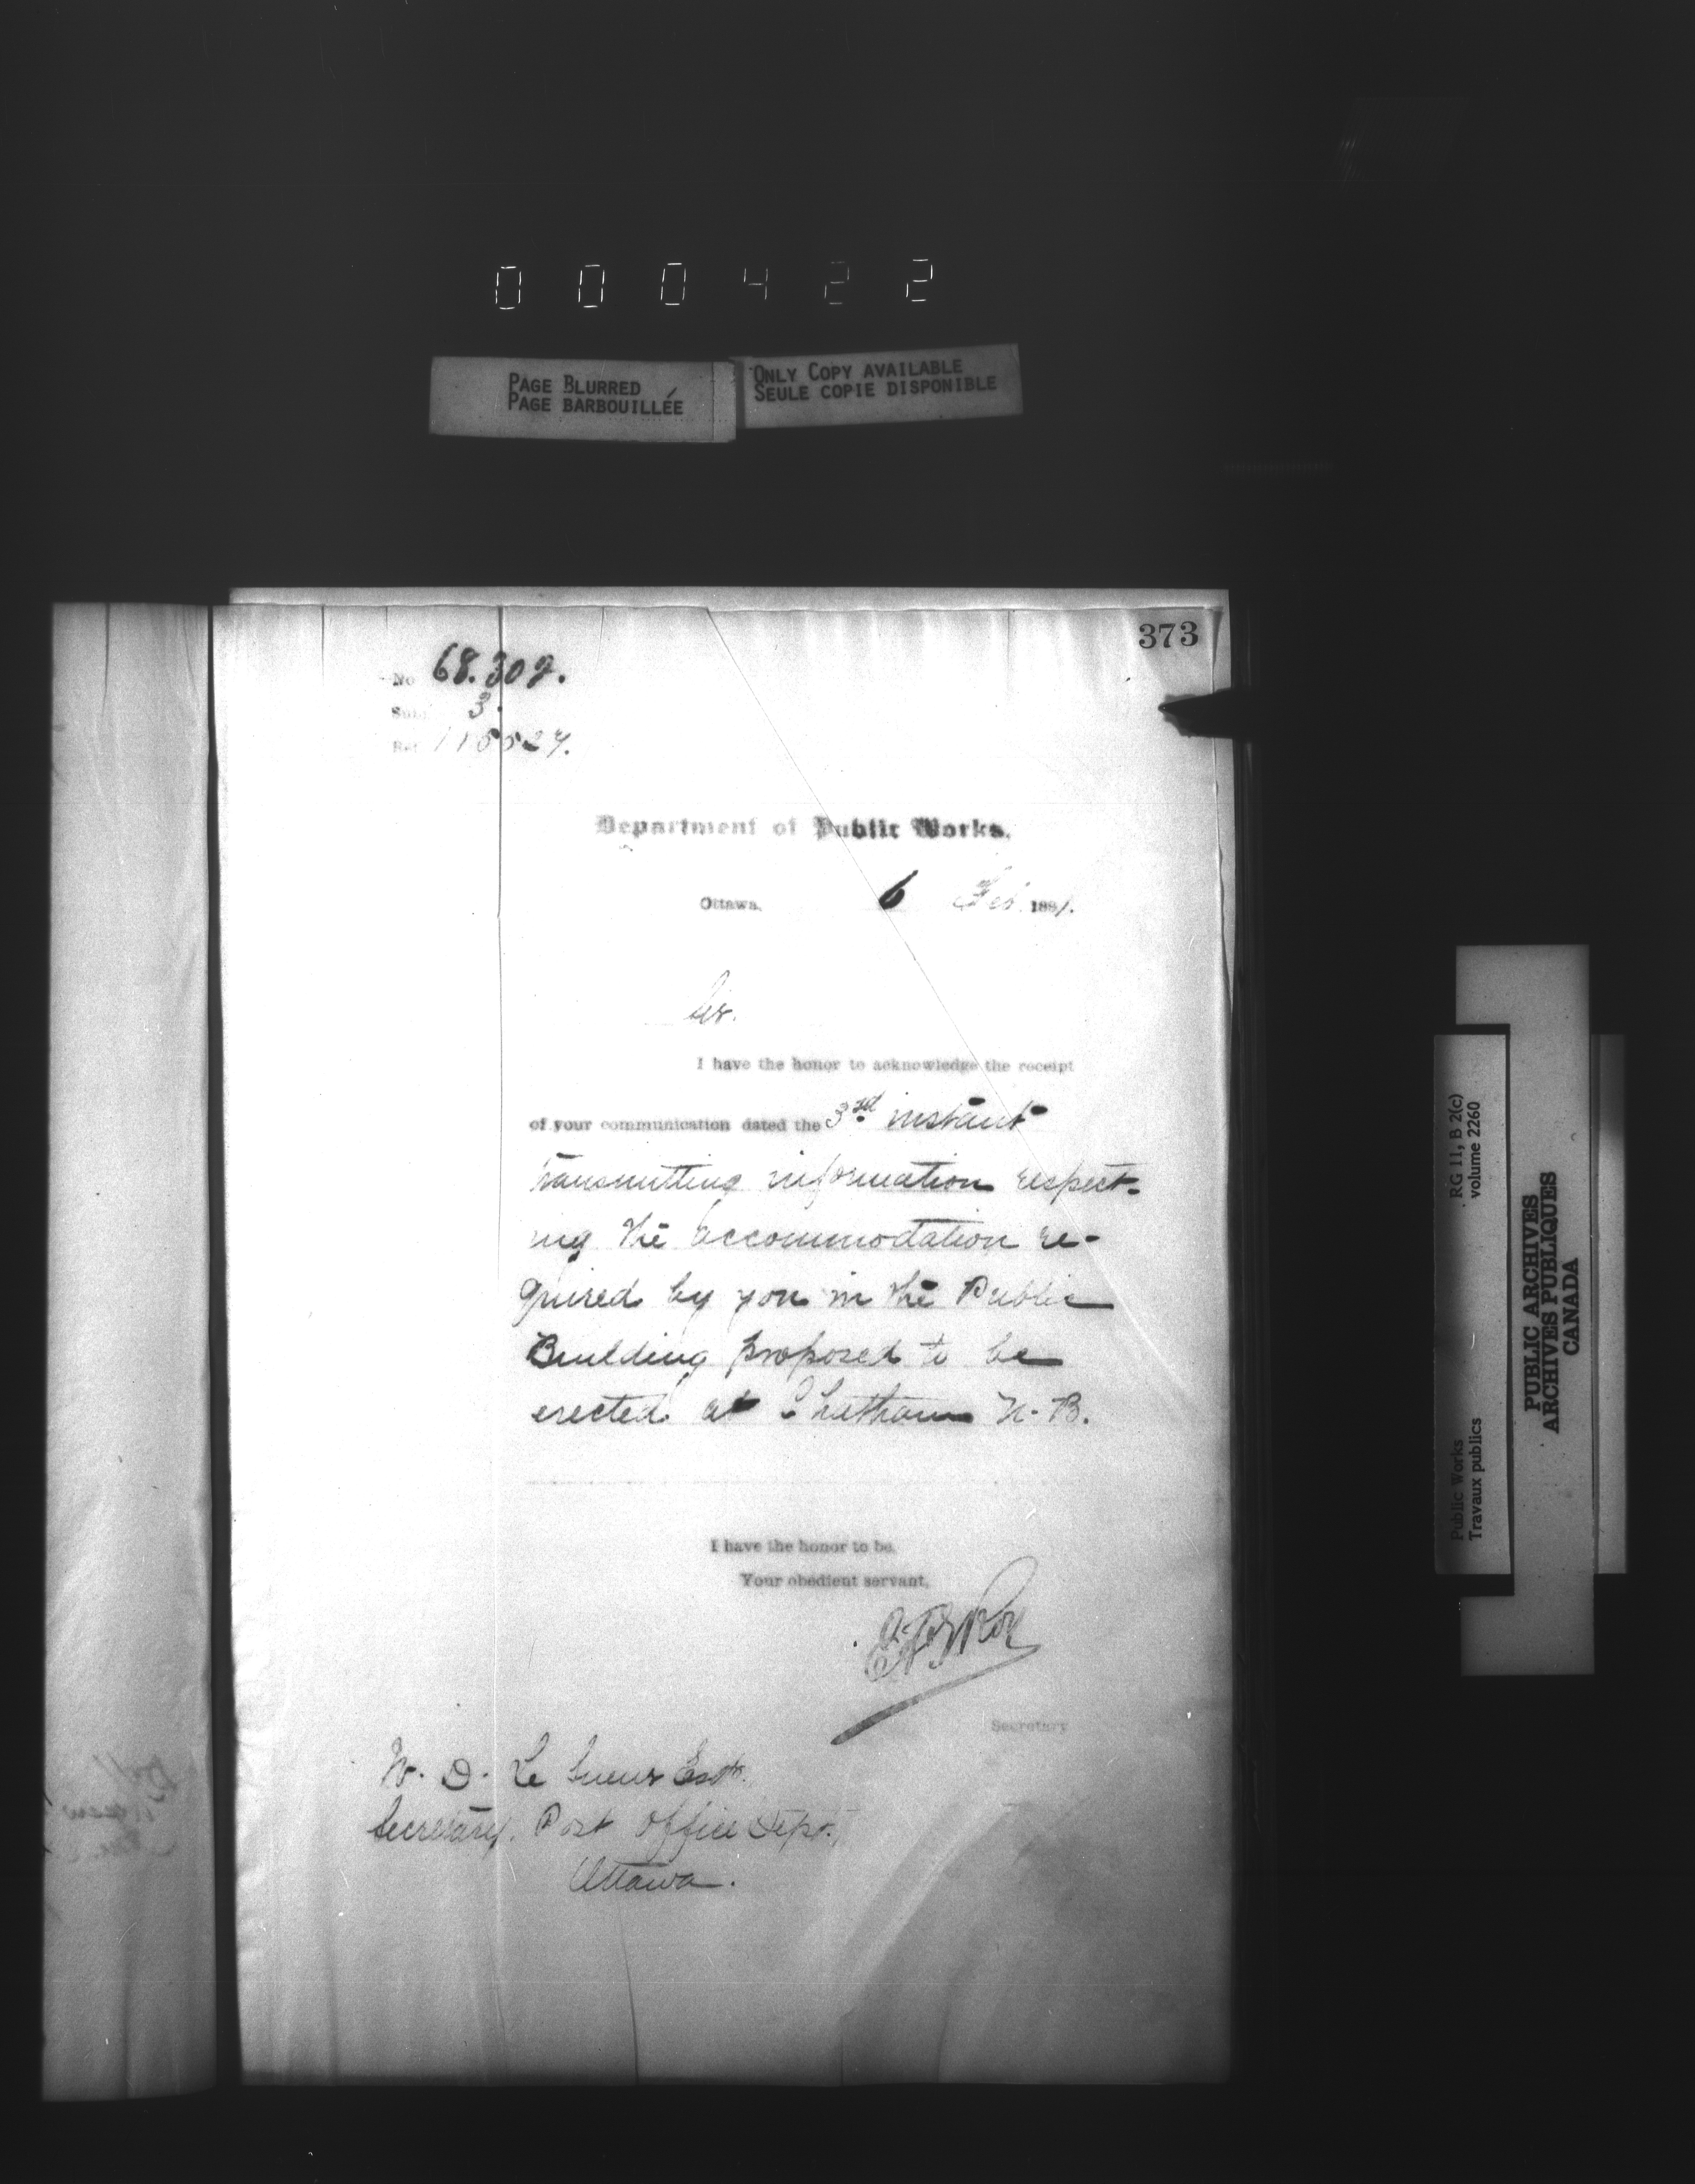 0 0 0 4 2 2
PAGE BLURRED
PAGE BARBOUILLÉE
ONLY COPY AVAILABLE
SEULE COPIE DISPONIBLE
373
No 68.309.
Sub. 3.
Ref
Department of Public Works.
Ottawa, 6 Feb. 1891.
Sir.
I have the honor to acknowledge the receipt
of your communication dated the 3rd instant
transmitting information respect-
ing the accommodation re-
quired by you in the Public
Building proposed to be
erected at Chatham N. B.
I have the honor to be,
Your obedient servant,
Roy
Secretary
W. D. Le Sueur Esqr.
Secretary. Post Office Dept.,
Ottawa.
Public Works
Travaux publics
RG 11, B 2(c)
volume 2260
PUBLIC ARCHIVES
ARCHIVES PUBLIQUES
CANADA